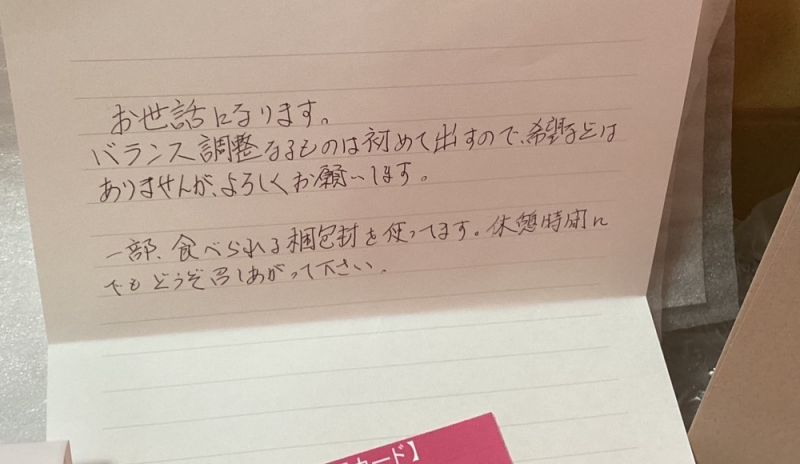 お世話になります。
バランス調整なるものは初めて出すので、希望などは
ありませんが、よろしくお願いします。
一部、食べられる梱包封を使ってます。休憩時間に
でもどうぞ召しあがって下さい。
カード】